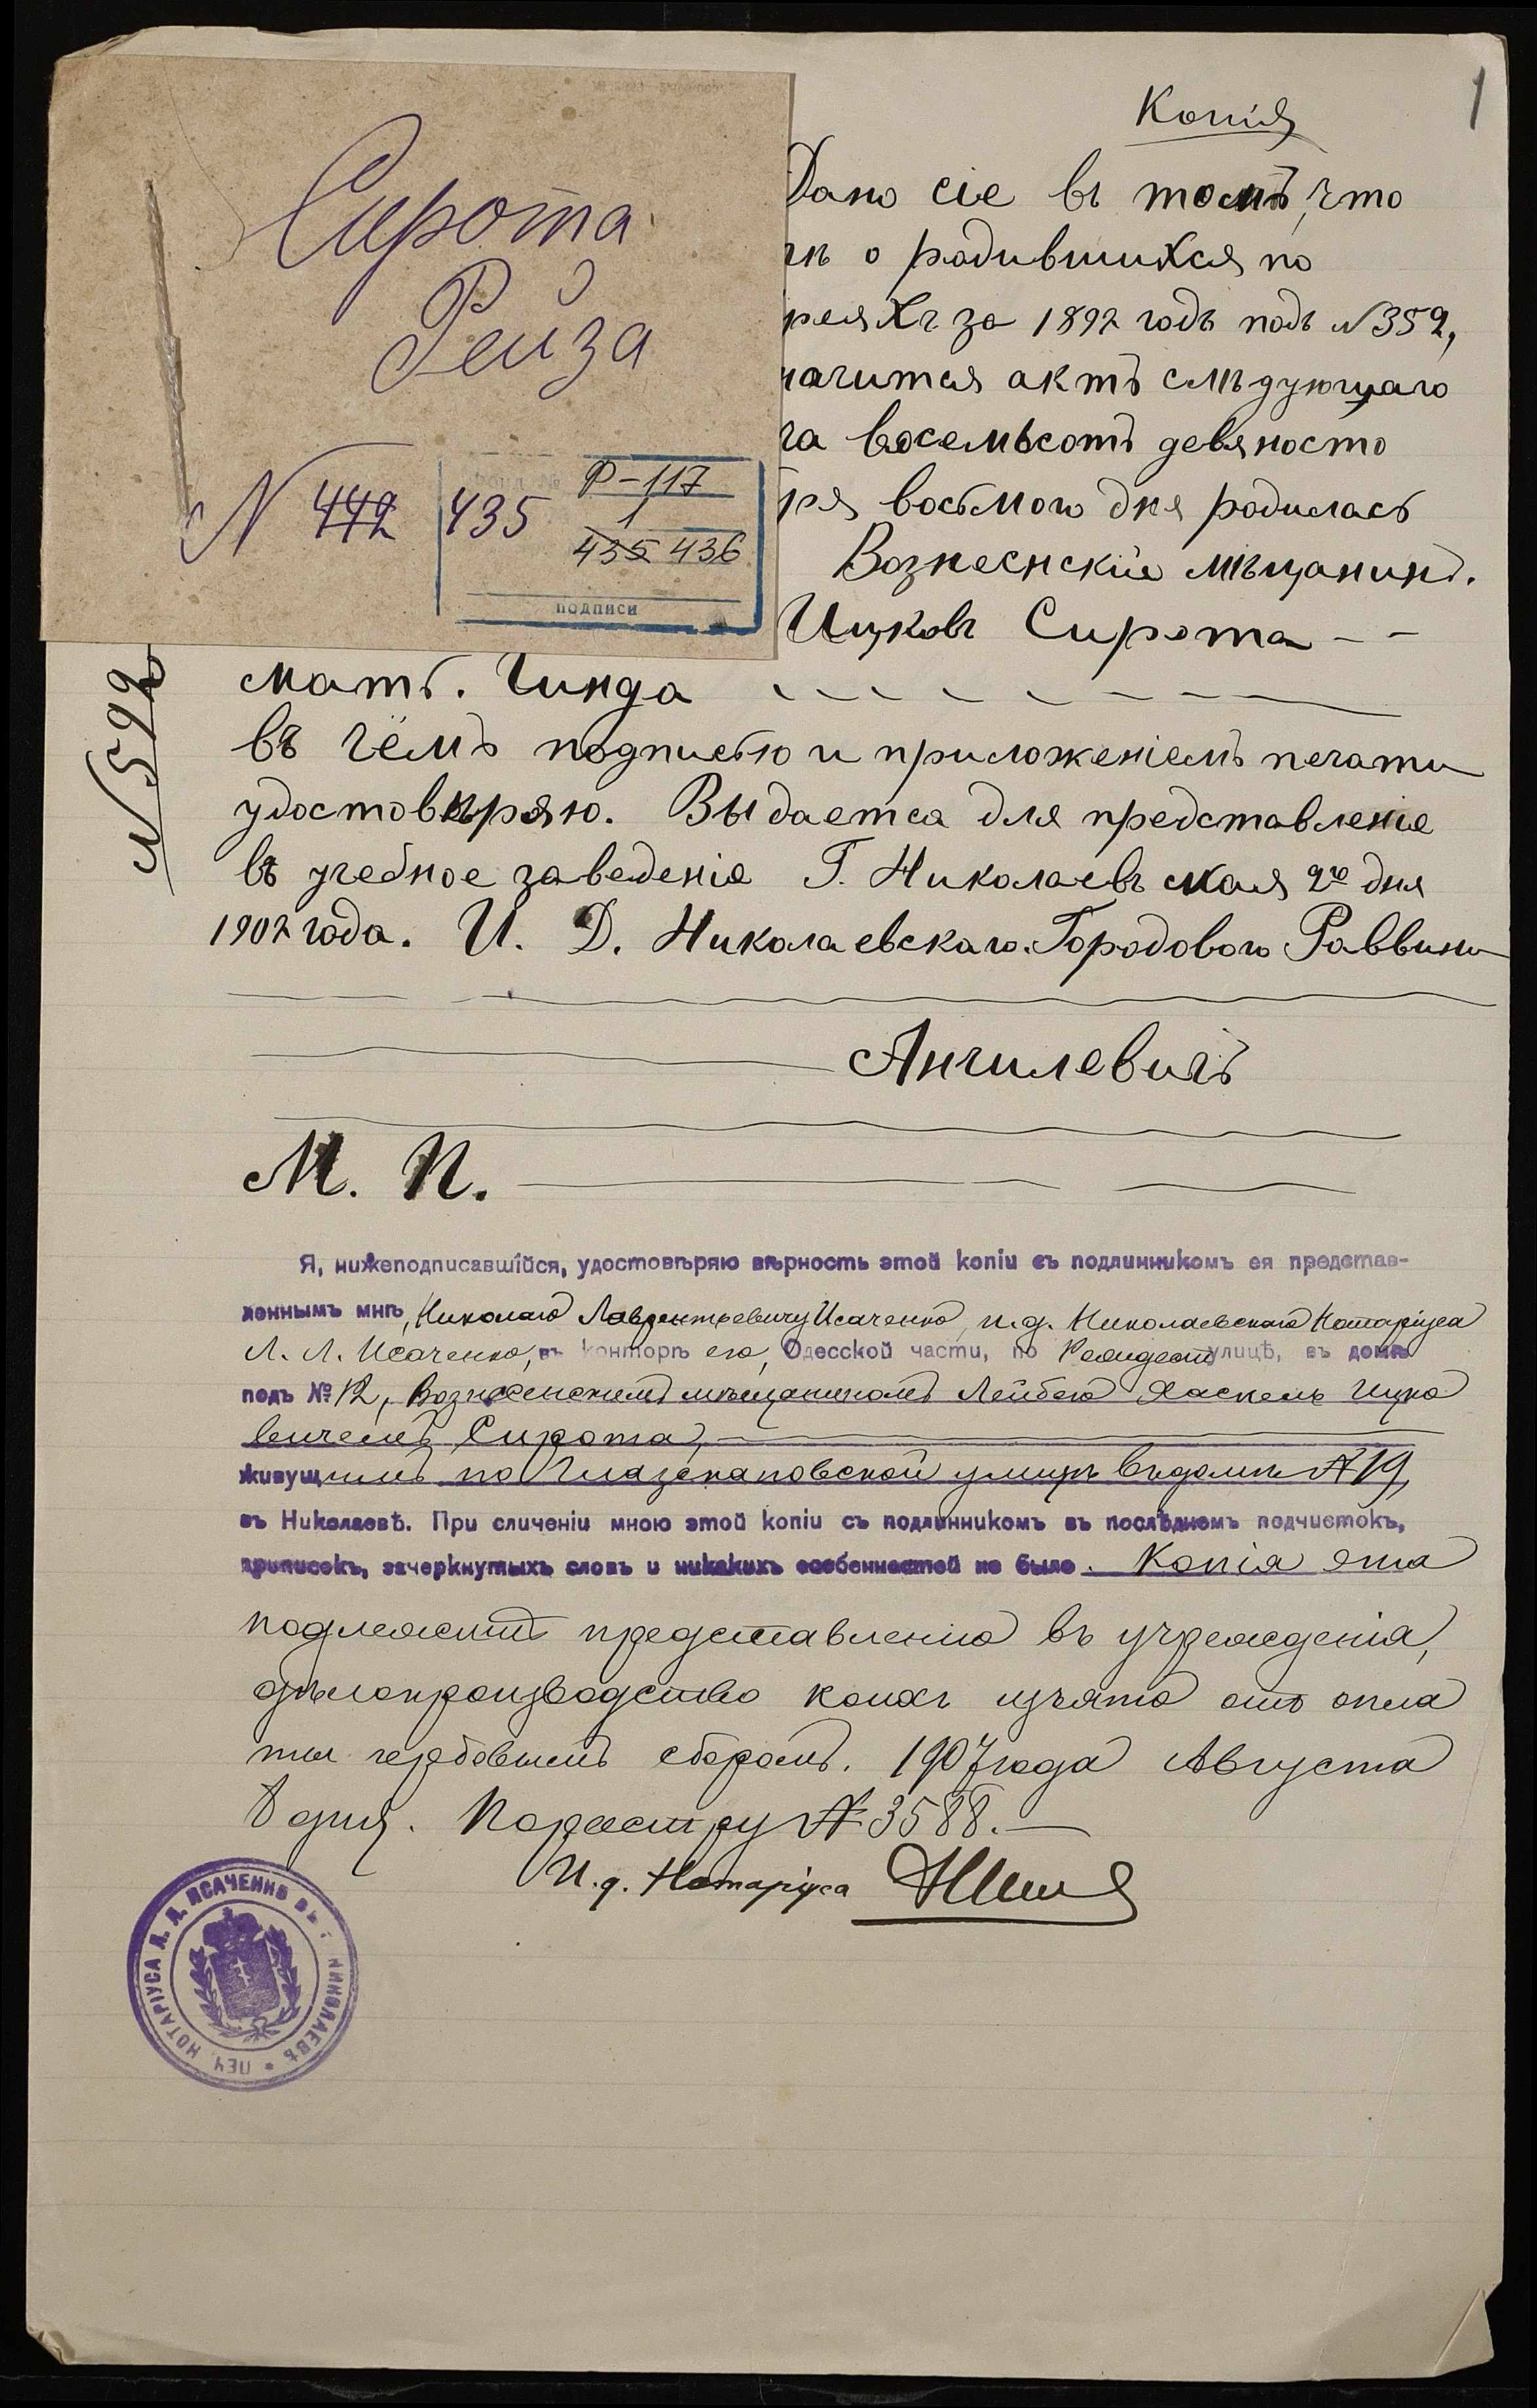 1
Копія
Сирота
Рейза
N 442 435
Р-117
1
435 436
подписи
Дано сіе въ томъ, что
о родившихся по
реяхъ за 1892 годъ подъ №352,
начится актъ слѣдующаго
ча восемьсотъ девяносто
ря восьмого дня родилась
Вознесенскій мѣщанинъ.
Ицковъ Сирота
N 592
мать. Гинда
въ чёмъ подписью и приложеніемъ печати
удостовѣряю. Выдается для представленія
въ учебное заведеніе Г. Николаевъ мая 2го дня
1902 года. И. Д. Николаевскаго Городового Раввина
Ангилевичъ
М. П.
Я, нижеподписавшійся, удостовѣряю вѣрность этой копіи съ подлинникомъ ея представ-
леннымъ мнѣ, Николаю Лаврентьевичу Исаченко, и.д. Николаевскаго Нотаріуса
Л. Л. Исаченко, въ конторѣ его, Одесской части, по улицѣ, въ домѣ
подъ № 12, Вознесенскимъ мѣщаниномъ Лейбою Хаскель Ицко
вичемъ Сирота,
живущимъ по Глазенаповской улицѣ въ домѣ № 19,
въ Николаевѣ. При сличеніи мною этой копіи съ подлинникомъ въ послѣднемъ подчистокъ,
приписокъ, зачеркнутыхъ словъ и никакихъ особенностей не было. Копія эта
подлежитъ представленію въ учрежденія,
дѣлопроизводство коихъ изъято отъ опла
ты гербовымъ сборомъ. 1907 года Августа
8 дня. По реестру № 3588.
И. д. Нотаріуса
ПЕЧ. НОТАРІУСА Л. Л. ИСАЧЕНКО ВЪ Г. НИКОЛАЕВѢ